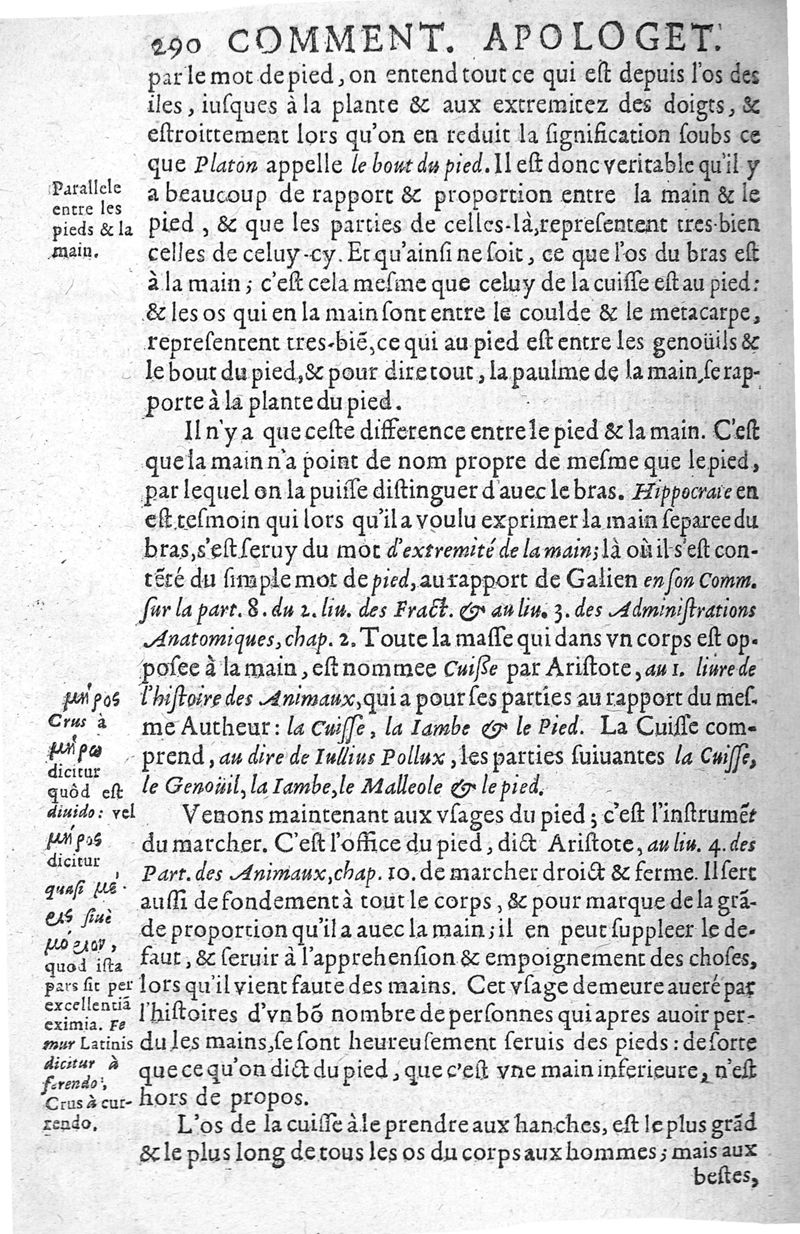 290 COMMENT. APOLOGET.
par le mot de pied, on entend tout ce qui eſt depuis l'os des
iles, iuſques à la plante & aux extremitez des doigts, &
eſtroittement lors qu'on en reduit la ſignification ſoubs ce
que Platon appelle le bout du pied. Il eſt donc veritable qu'il y
a beaucoup de rapport & proportion entre la main & le
pied, & que les parties de celles-là, repreſentent tres-bien
celles de celuy-cy. Et qu'ainſi ne ſoit, ce que l'os du bras eſt
à la main; c'eſt cela meſme que celuy de la cuiſſe eſt au pied:
& les os qui en la main ſont entre le coulde & le metacarpe,
repreſentent tres-biẽ, ce qui au pied eſt entre les genoüils &
le bout du pied, & pour dire tout, la paulme de la main, ſe rap-
porte à la plante du pied.
Parallele
entre les
pieds & la
main.
Il n'y a que ceſte difference entre le pied & la main. C'eſt
que la main n'a point de nom propre de meſme que le pied,
par lequel on la puiſſe diſtinguer d'auec le bras. Hippocrate en
eſt teſmoin qui lors qu'il a voulu exprimer la main ſeparee du
bras, s'eſt ſeruy du mot d'extremité de la main; là où il s'eſt con-
tẽté du ſimple mot de pied, au rapport de Galien en ſon Comm.
ſur la part. 8. du 2. liu. des Fract. & au liu. 3. des Adminiſtrations
Anatomiques, chap. 2. Toute la maſſe qui dans vn corps eſt op-
poſee à la main, eſt nommee Cuiſſe par Ariſtote, au 1. liure de
l'hiſtoire des Animaux, qui a pour ſes parties au rapport du meſ-
me Autheur: la Cuiſſe, la Iambe & le Pied. La Cuiſſe com-
prend, au dire de Iullius Pollux, les parties ſuiuantes la Cuiſſe,
le Genoüil, la Iambe, le Malleole & le pied.
Venons maintenant aux vſages du pied; c'eſt l'inſtrumẽt
du marcher. C'eſt l'office du pied, dict Ariſtote, au liu. 4. des
Part. des Animaux, chap. 10. de marcher droict & ferme. Il ſert
auſſi de fondement à tout le corps, & pour marque de la grã-
de proportion qu'il a auec la main; il en peut ſuppleer le de-
faut, & ſeruir à l'apprehenſion & empoignement des choſes,
lors qu'il vient faute des mains. Cet vſage demeure aueré par
l'hiſtoires d'vn bõ nombre de perſonnes qui apres auoir per-
du les mains, ſe ſont heureuſement ſeruis des pieds: de ſorte
que ce qu'on dict du pied, que c'eſt vne main inferieure, n'eſt
hors de propos.
μηρὸς
Crus à
μηρῶ
dicitur
quôd eſt
diuido: vel
μηρὸς
dicitur
quaſi
ſiuè
quod iſta
pars ſit per
excellentiã
eximia. Fe
mur Latinis
dicitur à
ferendo,
Crus à cur-
rendo.
L'os de la cuiſſe à le prendre aux hanches, eſt le plus grãd
& le plus long de tous les os du corps aux hommes; mais aux
beſtes,